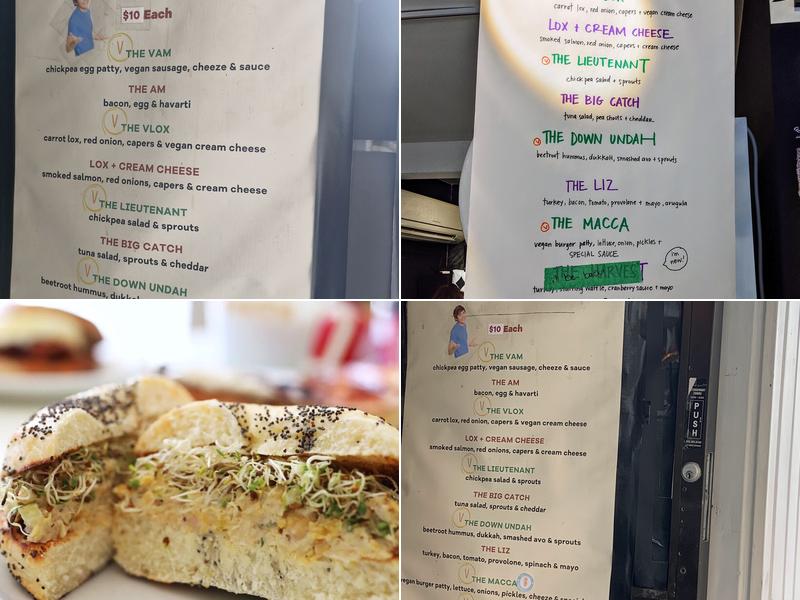 $10 Each
V THE VAM
chickpea egg patty, vegan sausage, cheeze & sauce
THE AM
bacon, egg & havarti
V THE VLOX
carrot lox, red onion, capers & vegan cream cheese
LOX + CREAM CHEESE
smoked salmon, red onions, capers & cream cheese
V THE LIEUTENANT
chickpea salad & sprouts
THE BIG CATCH
tuna salad, sprouts & cheddar
V THE DOWN UNDAH
beetroot hummus,
carrot lox, red onion, capers + vegan cream cheese
LOX + CREAM CHEESE
smoked salmon, red onion, capers + cream cheese
V THE LIEUTENANT
chickpea salad + sprouts
THE BIG CATCH
tuna salad, pea shoots + cheddar
V THE DOWN UNDAH
beetroot hummus, dukkah, smashed avo + sprouts
THE LIZ
turkey, bacon, tomato, provolone + mayo, arugula
V THE MACCA
vegan burger patty, lettuce, onion, pickles +
SPECIAL SAUCE
I'm new!
cranberry sauce + mayo
$10 Each
V THE VAM
chickpea egg patty, vegan sausage, cheeze & sauce
THE AM
bacon, egg & havarti
V THE VLOX
carrot lox, red onion, capers & vegan cream cheese
LOX + CREAM CHEESE
smoked salmon, red onions, capers & cream cheese
V THE LIEUTENANT
chickpea salad & sprouts
THE BIG CATCH
tuna salad, sprouts & cheddar
V THE DOWN UNDAH
beetroot hummus, dukkah, smashed avo & sprouts
THE LIZ
turkey, bacon, tomato, provolone, spinach & mayo
V THE MACCA
vegan burger patty, lettuce, onions, pickles, cheeze &
PUSH